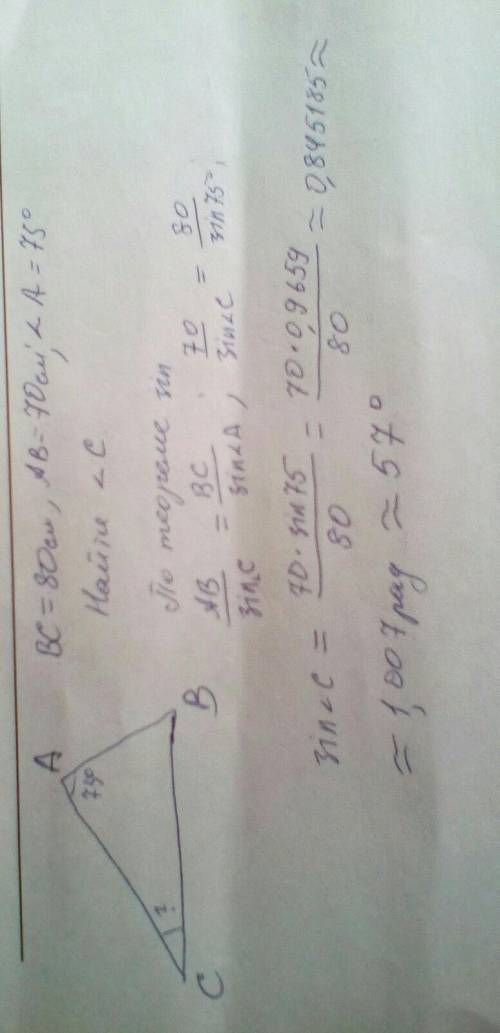 BC = 80см, AB = 70см, ∠A = 75°
Найти ∠C
A
75°
?
C
B
По теореме sin
AB/sin∠C = BC/sin∠A ; 70/sin∠C = 80/sin75° ;
sin∠C = 70·sin75/80 = 70·0,9659/80 ≈ 0,845185 ≈
≈ 1,007рад ≈ 57°